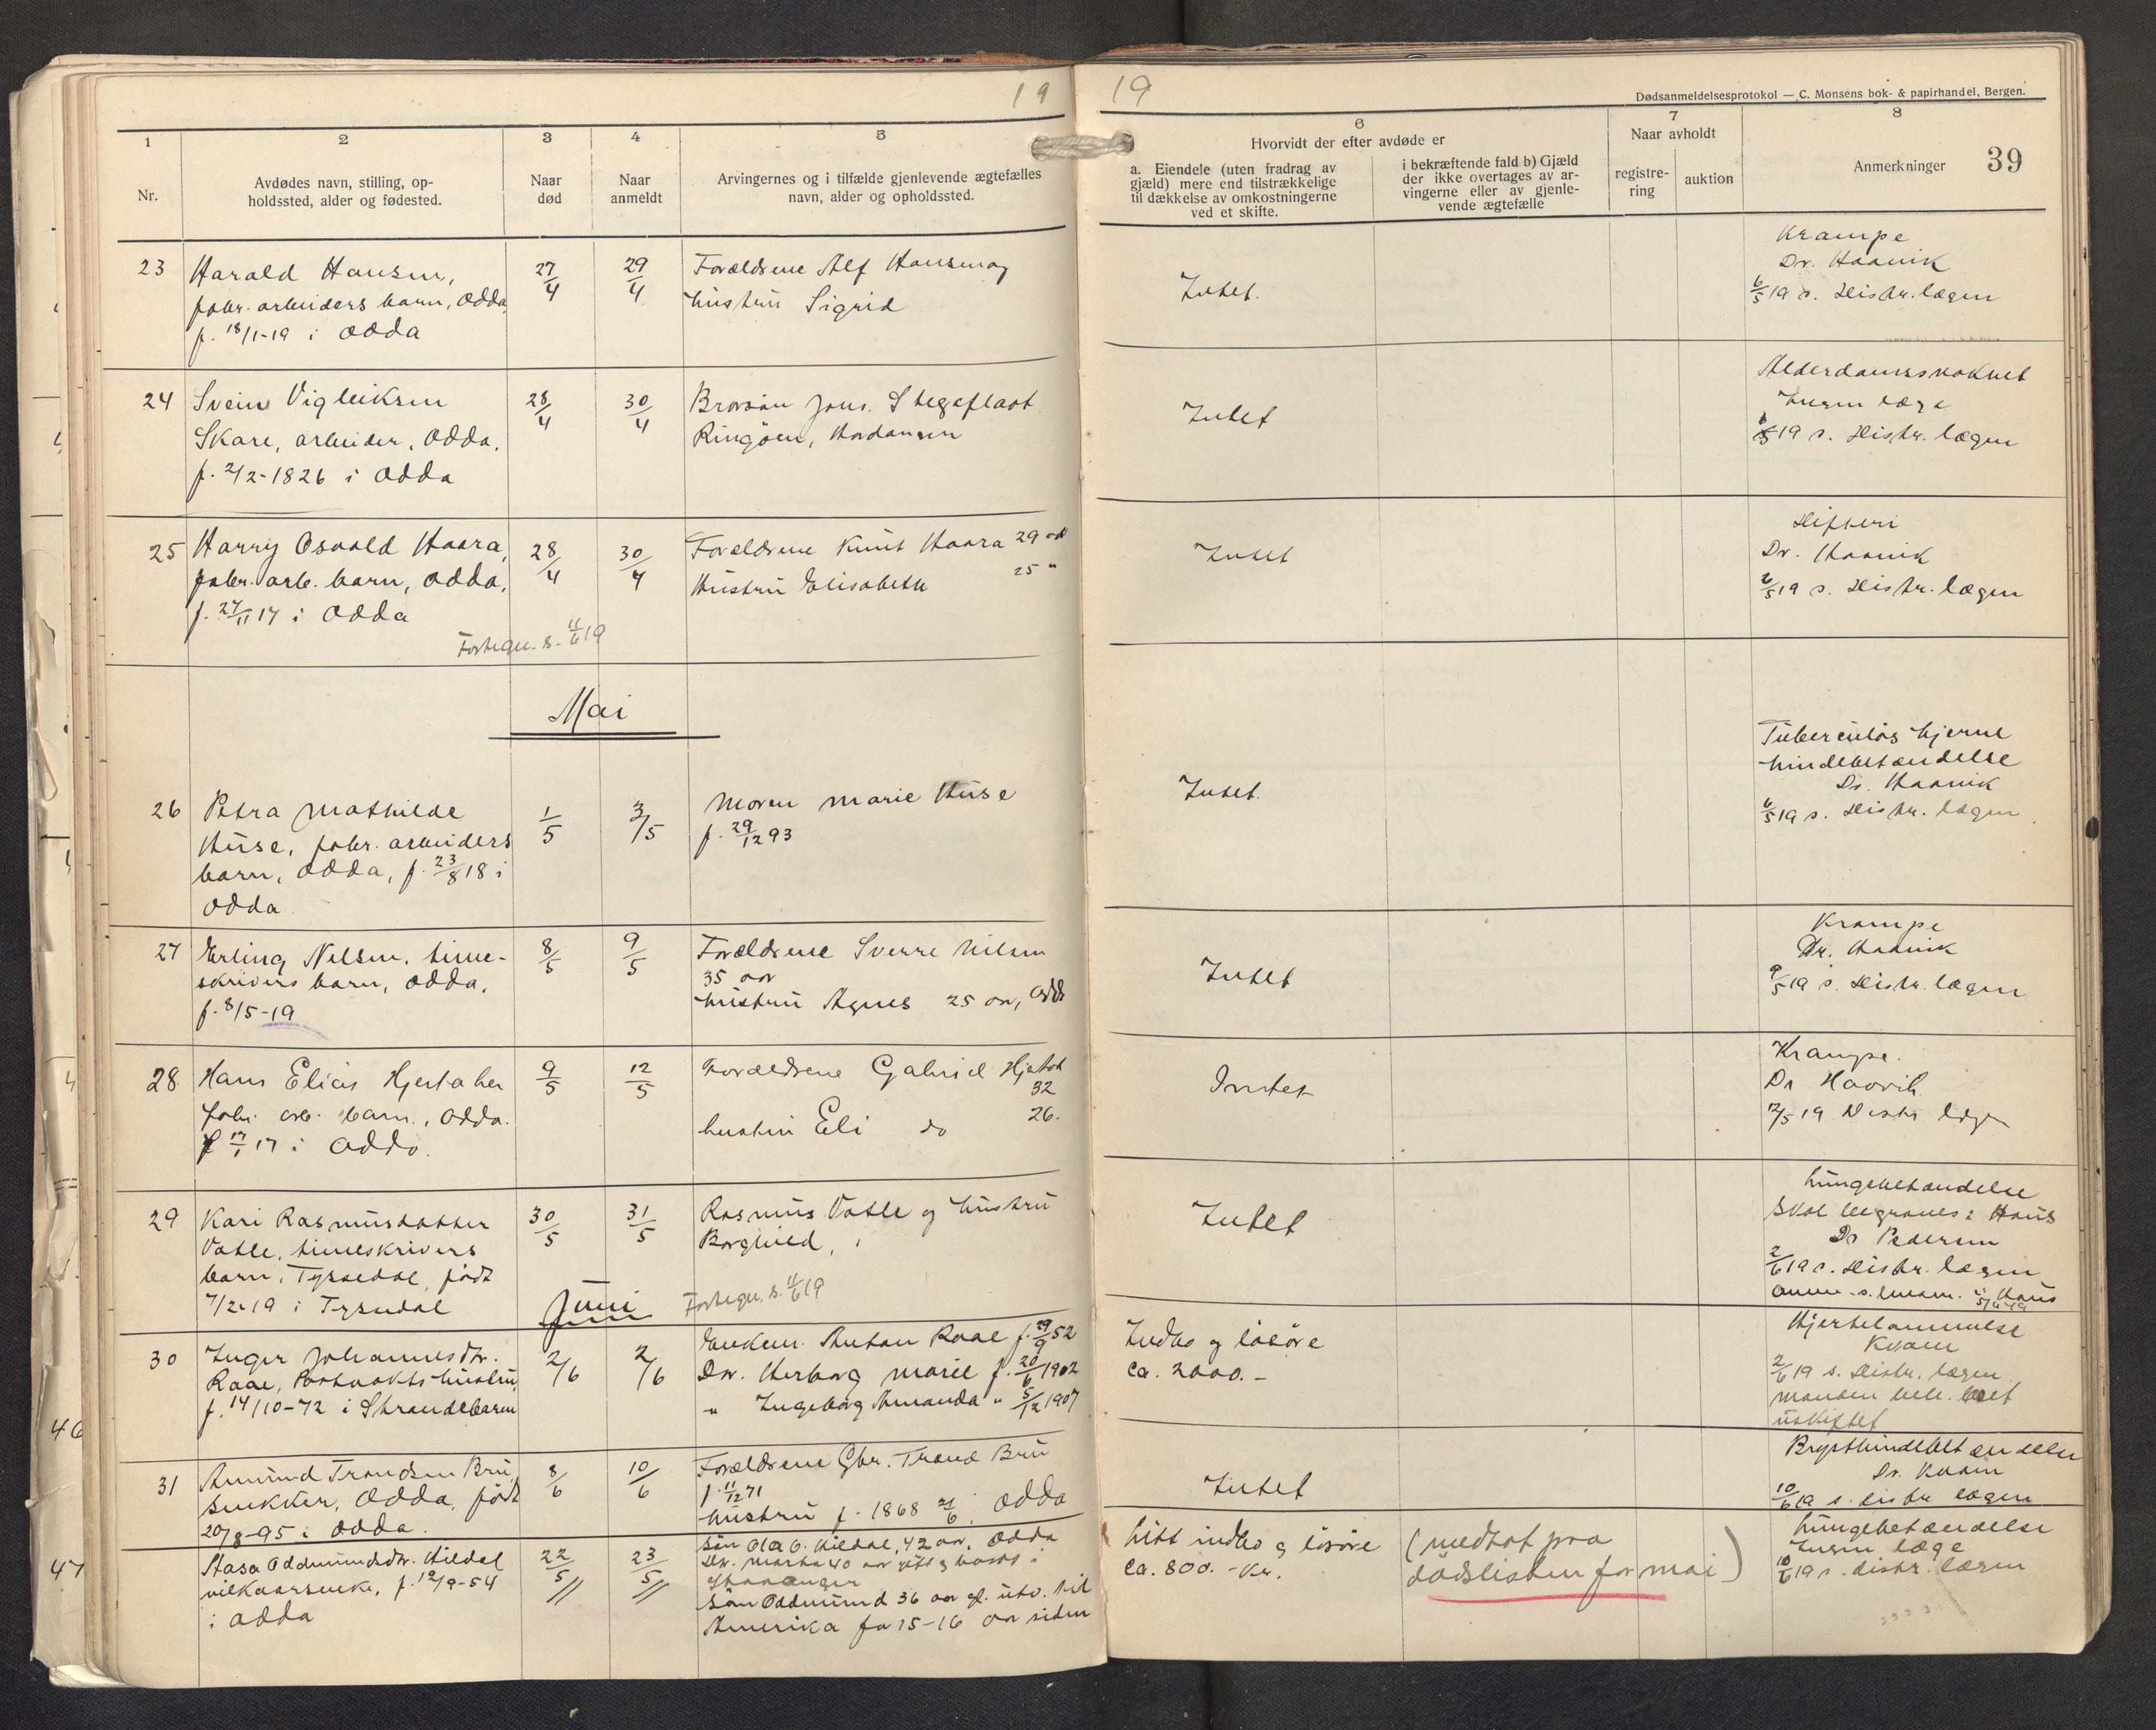 19
19
Dødsanmeldelsesprotokol — C. Monsens bok- & papirhandel, Bergen.
39
1
Nr.
2
Avdødes navn, stilling, op-
holdssted, alder og fødested.
3
Naar
død
4
Naar
anmeldt
5
Arvingernes og i tilfælde gjenlevende ægtefælles
navn, alder og opholdssted.
6
Hvorvidt der efter avdøde er
a. Eiendele (uten fradrag av
gjæld) mere end tilstrækkelige
til dækkelse av omkostningerne
ved et skifte.
i bekræftende fald b) Gjæld
der ikke overtages av ar-
vingerne eller av gjenle-
vende ægtefælle
7
Naar avholdt
registre-
ring
auktion
8
Anmerkninger
23
Harald Hansen,
fabr. arbeiders barn, Odda,
f. 18/1-19 i Odda
27/4
29/4
Forældrene Alf Hansen og
hustru Sigrid
Intet.
Krampe
Dr. Haavik
6/5 19 s. Distr. lægen
24
Svein Vigleiksen
Skare, arbeider, Odda,
f. 2/2-1826 i Odda
28/4
30/4
Brorsøn Jons. Stegaflaat
Ringøen,
Intet
Alderdomssvakhet
Ingen læge
19 s. Distr. lægen
25
Harry Osvald Haara,
fabr. arb. barn, Odda,
f. 27/11 17 i Odda
28/4
30/4
Forældrene Knut Haara 29 aar
Hustru Elisabeth 25 "
Intet
Difteri
Dr. Haavik
2/5 19 s. Distr. lægen
Fortegn. s. 11/6 19
Mai
26
Petra Mathilde
Huse, fabr. arbeiders
barn, Odda, f. 23/8 18 i
Odda
1/5
3/5
Moren Marie Huse
f. 29/12 93
Intet.
Tuberculøs hjerne
hindebetændelse
Dr. Haavik
6/5 19 s. Distr. lægen
27
Erling Nilsen, time-
skrivers barn, Odda,
f. 8/5-19
8/5
9/5
Forældrene Sverre Nilsen
35 aar
hustru Agnes 25 aar, Odda
Intet
Krampe
Dr. Haavik
9/5 19 s. Distr. lægen
28
Hans Elias Hjertaker
fabr. arb. barn, Odda.
f 17/1 17 i Odda.
9/5
12/5
Forældrene Gabriel
32
hustru Eli do 26.
Intet
Krampe.
Dr Haavik
12/5 19 Distr læge
29
Kari Rasmusdatter
Vatle, timeskrivers
barn, Tyssedal, født
7/2 19 i Tyssedal
30/5
31/5
Rasmus Vatle og hustru
Borghild,
Intet
Lungebetændelse
Skal begraves i Haus
Dr Pedersen
2/6 19 s. Distr. lægen
i Haus
5/6 19
Juni
Fortegn. s. 11/6 19
30
Inger Johannesdtr.
Raae, hustru,
f. 14/10-72 i Strandebarm
2/6
2/6
Enkem. Anton Raae f. 29/9 52
Dtr. Herborg Marie f. 20/6 1902
" Ingeborg Amanda " 5/12 1907
Indbo og løsøre
ca. 2000.-
Hjertelammelse
Kvam
2/6 19 s. Distr. lægen
Manden beh. boet
uskiftet
31
Amund Trondsen Bru,
snekker, Odda, født
20/8-95 i Odda.
8/6
10/6
Forældrene Gbr. Trond Bru
f. 11/12 71
hustru f. 1868 21/6, Odda
Intet
Brysthindebetændelse
Dr. Kvam
10/6 19 s. distr lægen
Aasa Oddmundsdtr. Hildal
vilkaarsenke, f. 12/9-54
i Odda
22/5
23/5
Søn Ola O. Hildal, 42 aar, Odda
Dtr. Marta 40 aar gift og bosat i
Stavanger
Søn Oddmund 36 aar gl. utv. til
Amerika for 15-16 aar siden
Litt indbo og løsøre
ca. 800.- Kr.
(medtat paa
dødslisten for mai)
Lungebetændelse
Ingen læge
10/6 19 s. distr. lægen
46
47